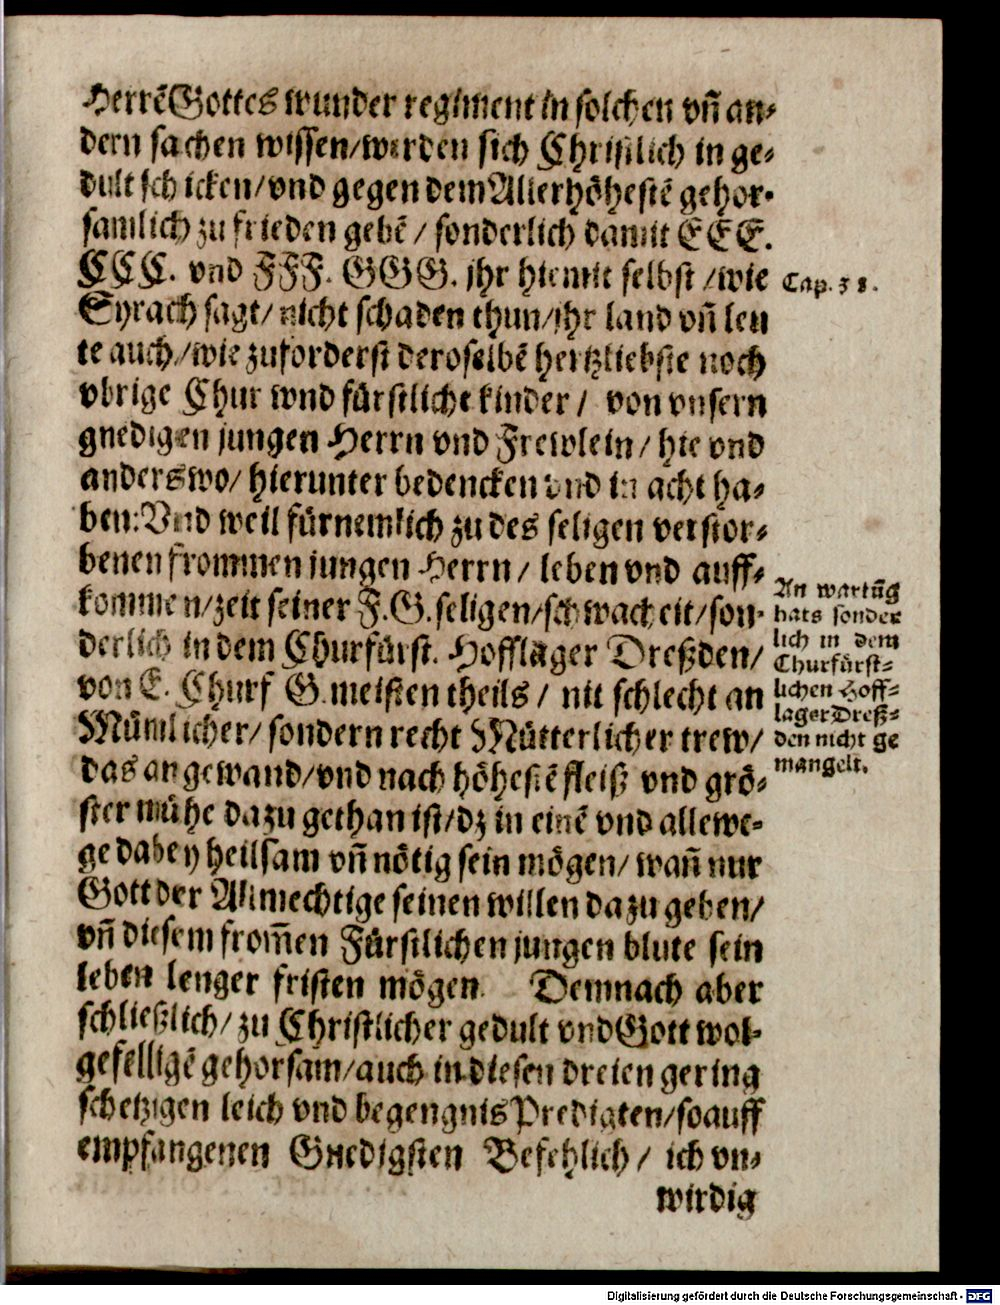 Herrē Gottes wunder regiment in solchen vn̄ an-
dern sachen wissen/ werden sich Christlich in ge-
dult schicken/ vnd gegen dem Allerhöhestē gehor-
samlich zu frieden gebē/ sonderlich damit E E E.
C C C. vnd F F F. G G G. jhr hiemit selbst/ wie
Syrach sagt/ nicht schaden thun/ jhr land vn̄ leu
te auch/ wie zuforderst deroselbē hertzliebste noch
vbrige Chur wnd fürstliche kinder/ von vnsern
gnedigen jungen Herrn vnd Frewlein/ hie vnd
anderswo/ hierunter bedencken vnd in acht ha-
ben: Vnd weil fürnemlich zu des seligen verstor-
benen frommen jungen Herrn/ leben vnd auff-
kommen/ zeit seiner F. G. seligen/ schwacheit/ son-
derlich in dem Churfürst. Hofflager Dreßden/
von E. Churf G. meisten theils/ nit schlecht an
Mümlicher/ sondern recht Mütterlicher trew/
das angewand/ vnd nach höhestē fleiß vnd grö-
ster mühe dazu gethan ist/ dz in einē vnd allewe-
ge dabey heilsam vn̄ nötig sein mögen/ wan̄ nur
Gott der Allmechtige seinen willen dazu geben/
vn̄ diesem from̄en Fürstlichen jungen blute sein
leben lenger fristen mögen. Demnach aber
schließlich/ zu Christlicher gedult vnd Gott wol-
gefelligē gehorsam/ auch in diesen dreien gering
schetzigen leich vnd begengnis Predigten/ so auff
empfangenen Gnedigsten Befehlich/ ich vn-
wirdig
Cap. 38.
An wartūg
hats sonder
lich in dem
Churfürst-
lichen Hoff-
lager Dreß-
den nicht ge
mangelt.
Digitalisierung gefördert durch die Deutsche Forschungsgemeinschaft - DFG